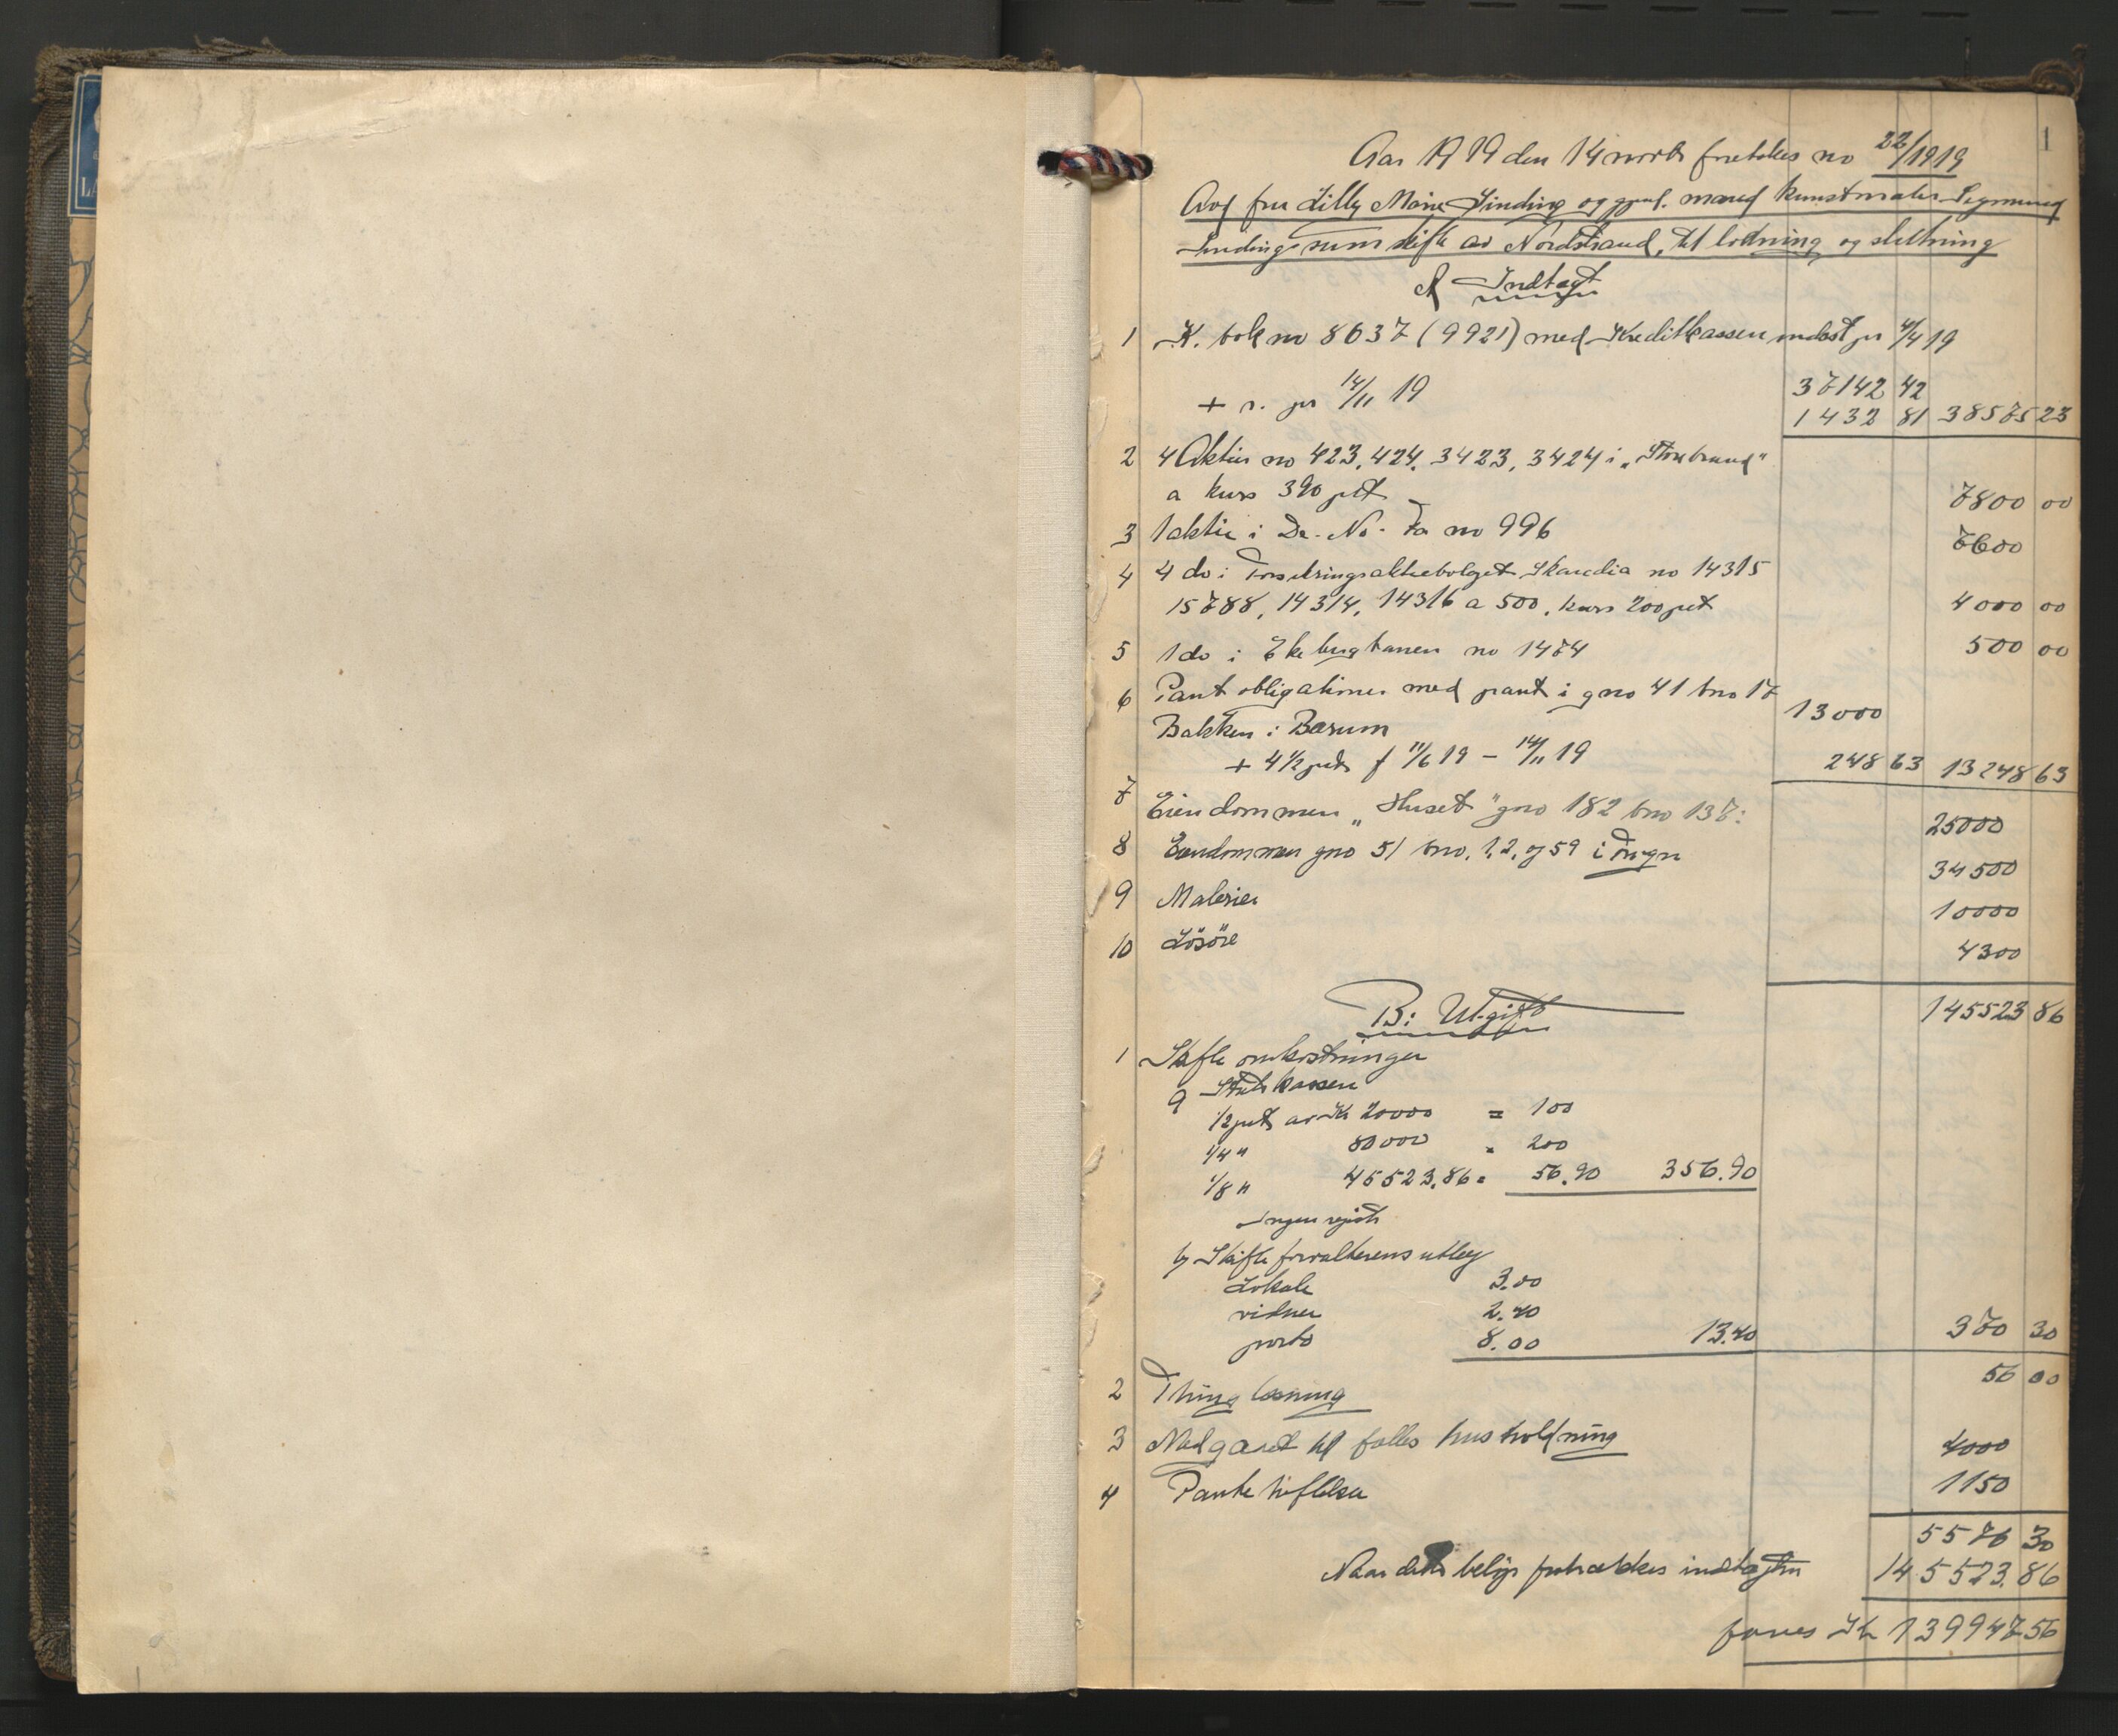 1
Aar 1919 den 14 novbr foretokes no 22/1919
Avd fru Lilly Marie Sinding og gjenl. mand kunstmaler Sigmund
Sindings sum skifte av Nordstrand, til lodning og slutning
A Indtægt
1 K. bok no 8637 (9921) med Kreditkassen indest pr 4/4 19
37142 42
+ r. pr 14/11 19 1432 81 38575 23
2 4 Aktier no 423, 424, 3423, 3424 i „Storebrand"
a kurs 390 pct 7800 00
3 1 aktie i De-No-Fa no 996 7600
4 4 do i Forsikringsaktiebolaget Skandia no 14315
15788, 14314, 14316 a 500, kurs 200 pct 4000 00
5 1 do i Ekebergbanen no 1474 500 00
6 Pantobligationer med pant i gno 41 bno 17
Bakken i Bærum 13000
+ 4 1/2 pct f 11/6 19 – 14/11 19 248 63 13248 63
7 Eiendommen „Huset" gno 182 bno 137: 25000
8 Eiendommen gno 51 bno. 1, 2, og 59 i 34500
9 Malerier 10000
10 Lösöre 4300
B: Utgift 145523 86
1 Skifteomkostninger
a Statskassen
1/2 pct av Kr 20000 = 100
1/4 " 80000 = 200
1/8 " 45523.86 = 56.90 356.90
Ingen registr
b) Skifteforvalterens utlæg
Lokale 3.00
vidner 2.40
porto 8.00 13.40 370 30
2 Thinglæsning 56 00
3 Medgaaet til fælles husholdning 4000
4 Panteheftelser 1150
5576 30
Naar dette beløp fratrækkes indtægten 145523.86
faaes Kr 139947 56